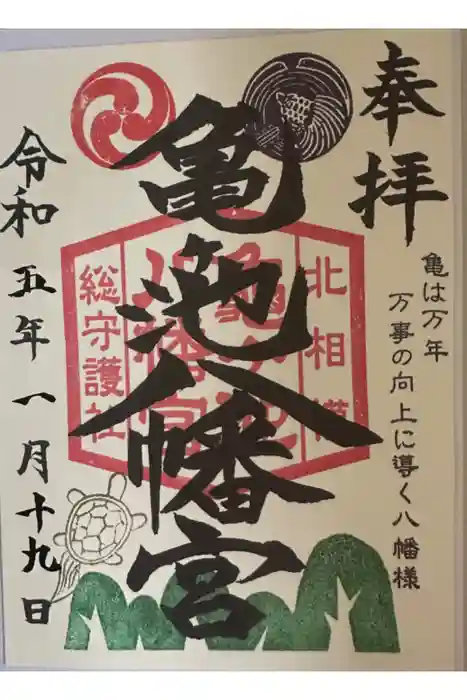 奉拝
亀は万年
万事の向上に導く八幡様
亀池八幡宮
北相模
亀ヶ池
八幡宮
総守護社
令和五年一月十九日